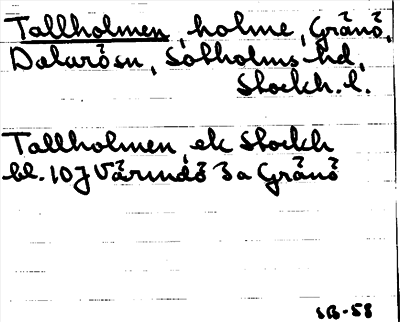 Tallholmen, holme, Gränö,
Dalarö sn, Sotholms hd,
Stockh. l.
Tallholmen ek Stockh
bl. 107 Värmdö 3 a Gränö
SB-58